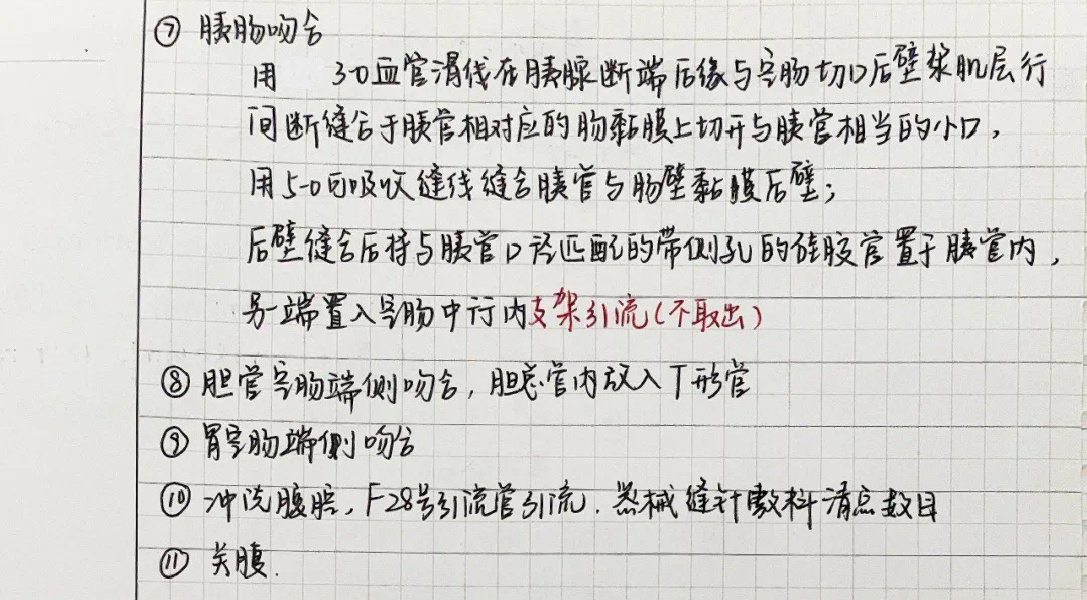 ⑦ 胰肠吻合
用 3-0血管滑线在胰腺断端后缘与空肠切口后壁浆肌层行
间断缝合于胰管相对应的肠黏膜上切开与胰管相当的小口，
用5-0可吸收缝线缝合胰管与肠壁黏膜后壁；
后壁缝合后将与胰管口径匹配的带侧孔的硅胶管置于胰管内，
另一端置入空肠中行内支架引流(不取出)
⑧ 胆管空肠端侧吻合，胆总管内放入T形管
⑨ 胃空肠端侧吻合
⑩ 冲洗腹腔，F28号引流管引流.器械缝针敷料清点数目
⑪ 关腹.